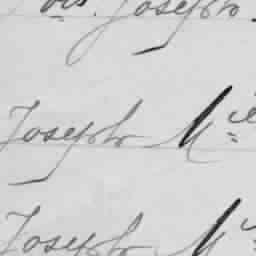 Joseph
Joseph Mie
Joseph M